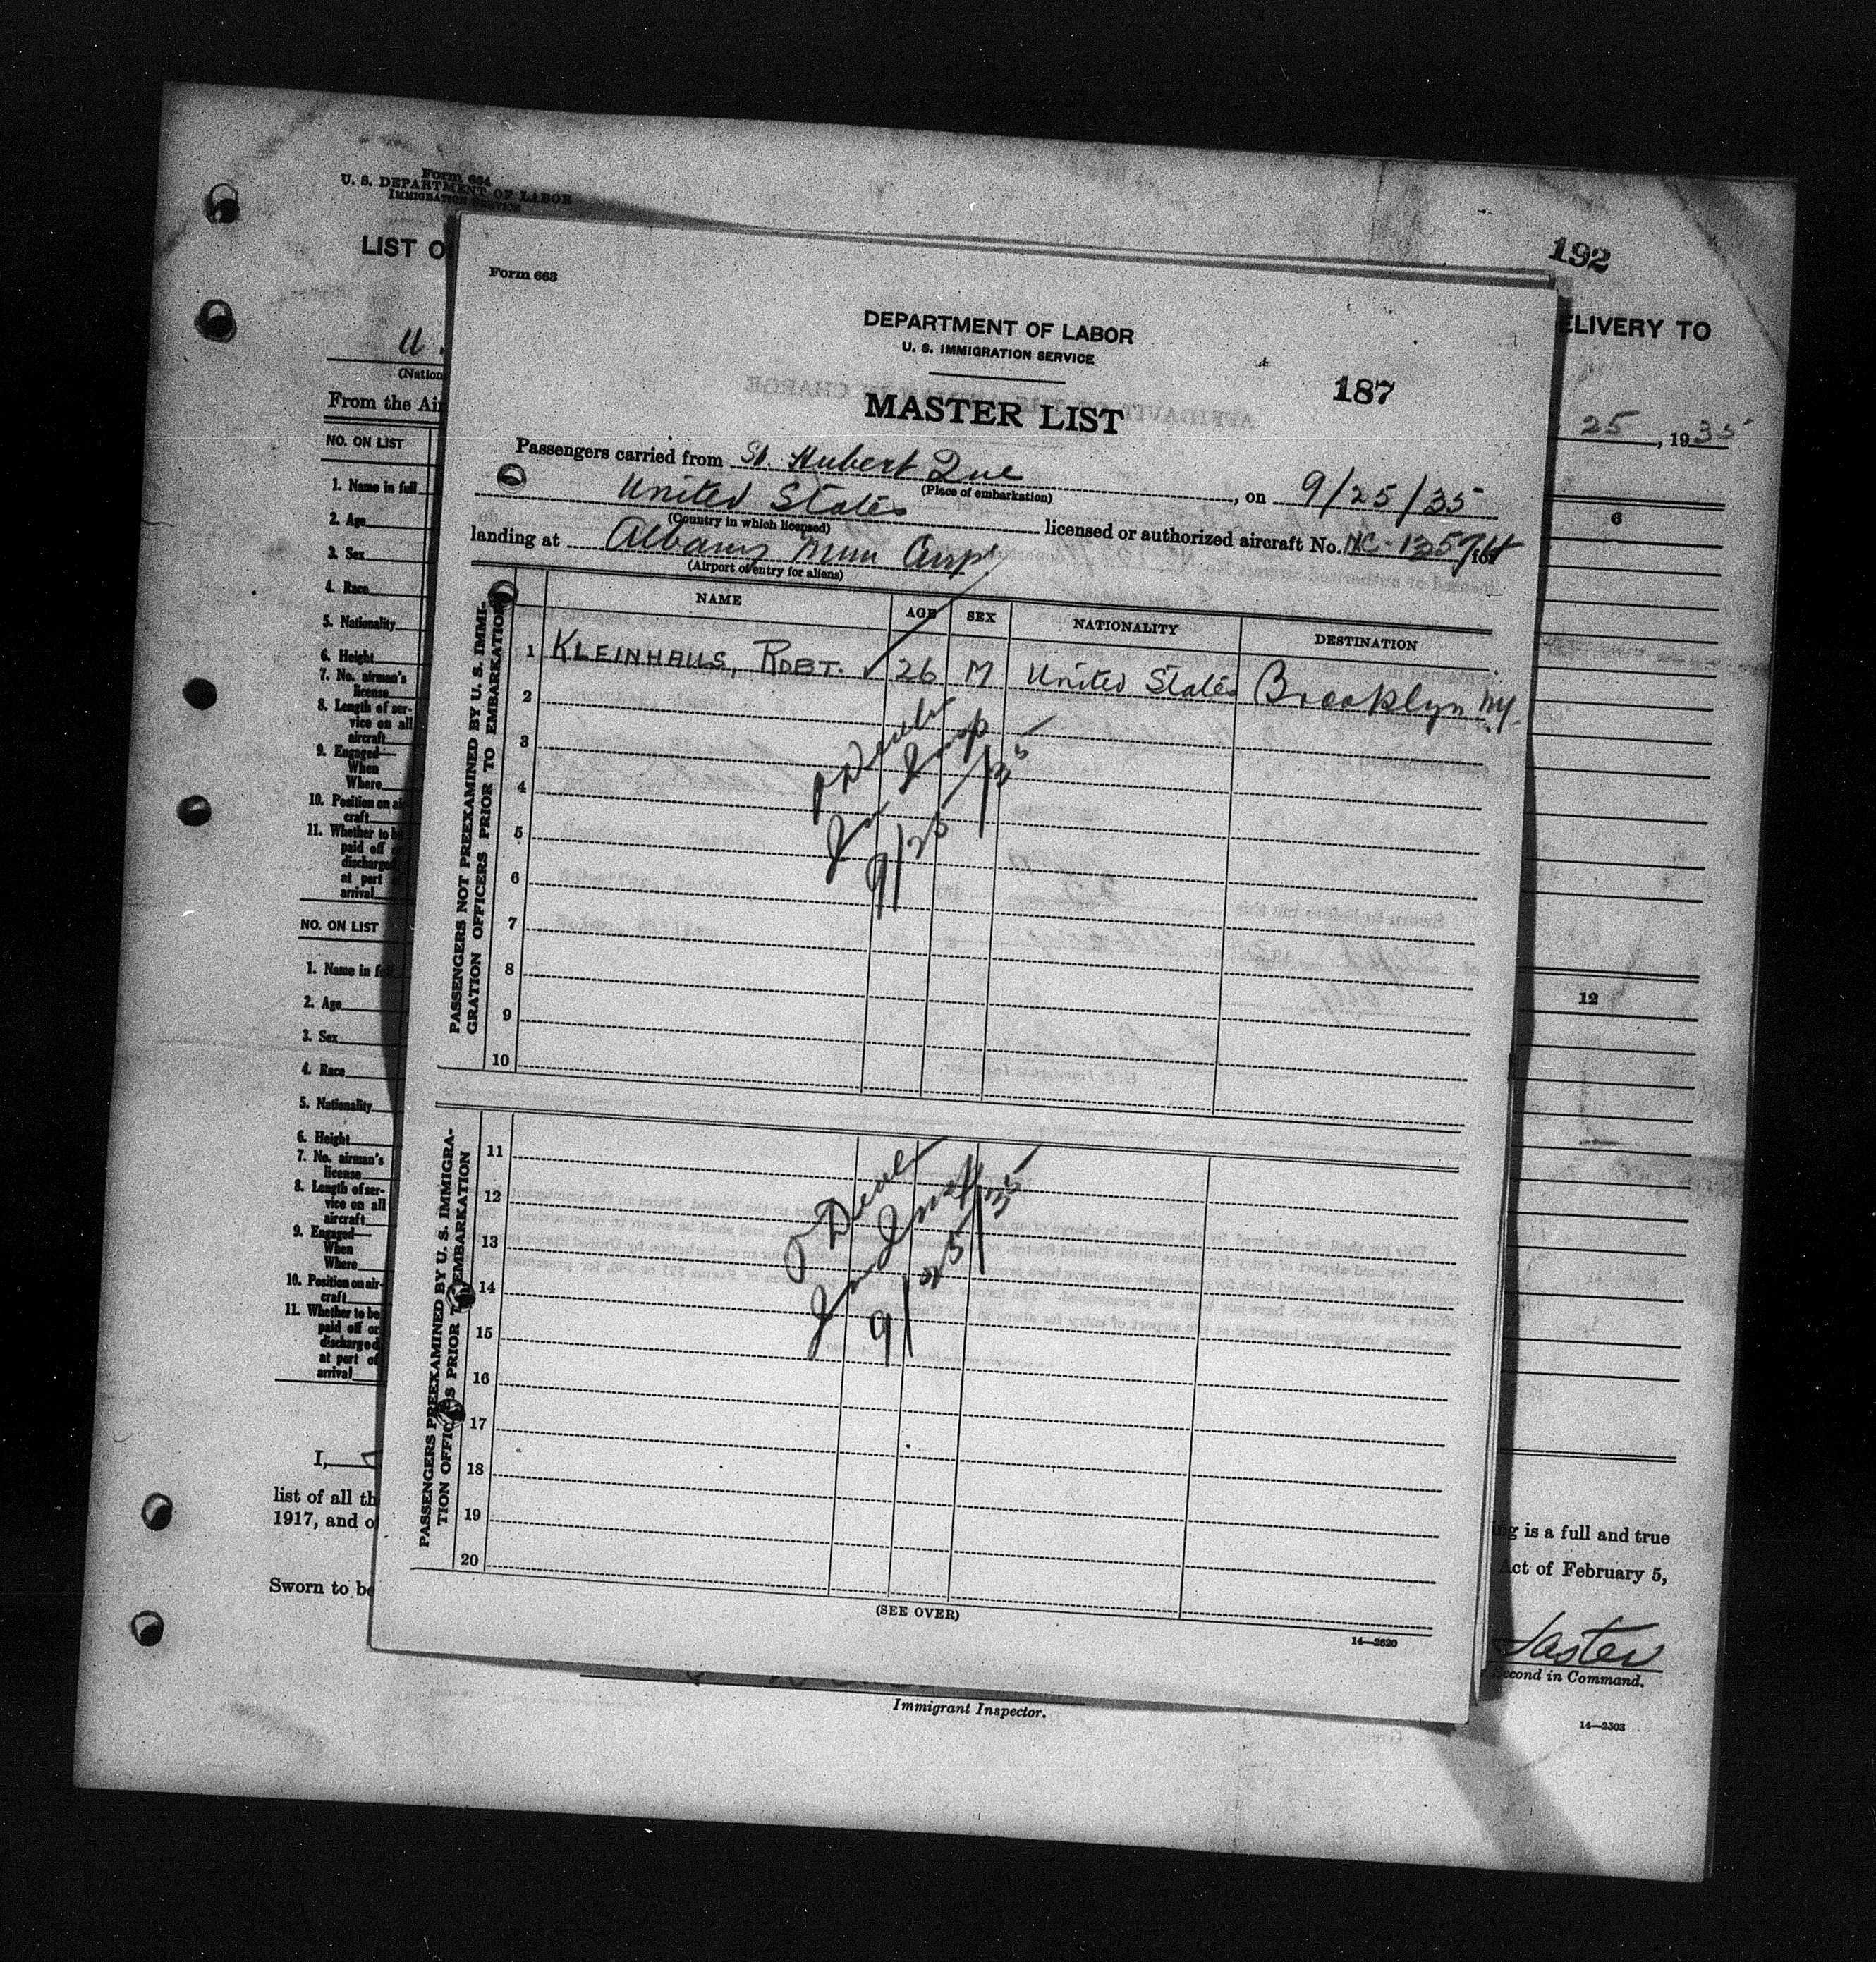 Form 664
U. S. DEPARTMENT OF LABOR
IMMIGRATION SERVICE
LIST O
192
ELIVERY TO
U.
(Nation
From the Air
25, 1935
NO. ON LIST
1. Name in full
2. Age
3. Sex
4. Race
5. Nationality
6. Height
7. No. airman's
license
8. Length of ser-
vice on all
aircraft
9. Engaged—
When
Where
10. Position on air-
craft
11. Whether to be
paid off o
discharged
at port o
arrival
6
NO. ON LIST
1. Name in fu
2. Age
3. Sex
4. Race
5. Nationality
6. Height
7. No. airman's
license
8. Length of ser-
vice on all
aircraft
9. Engaged—
When
Where
10. Position on air-
craft
11. Whether to be
paid off or
discharged
at port of
arrival
12
I,
list of all th
1917, and o
Sworn to be
ng is a full and true
Act of February 5,
Second in Command.
Immigrant Inspector.
14—2303
Form 663
DEPARTMENT OF LABOR
U. S. IMMIGRATION SERVICE
187
MASTER LIST
Passengers carried from St. Hubert Que, on 9/25/35
(Place of embarkation)
United States licensed or authorized aircraft No. NC-13574 for
(Country in which licensed)
landing at Albany Mun Airpt
(Airport of entry for aliens)
NAME AGE SEX NATIONALITY DESTINATION
PASSENGERS NOT PREEXAMINED BY U. S. IMMI-
GRATION OFFICERS PRIOR TO EMBARKATION
1 KLEINHAUS, ROBT. ✓ 26 M United States Brooklyn N.Y.
2
3
4
5
6
7
8
9
10
Insp
9/25/35
PASSENGERS PREEXAMINED BY U. S. IMMIGRA-
TION OFFICERS PRIOR TO EMBARKATION
11
12
13
14
15
16
17
18
19
20
9/25/35
(SEE OVER)
14—2620